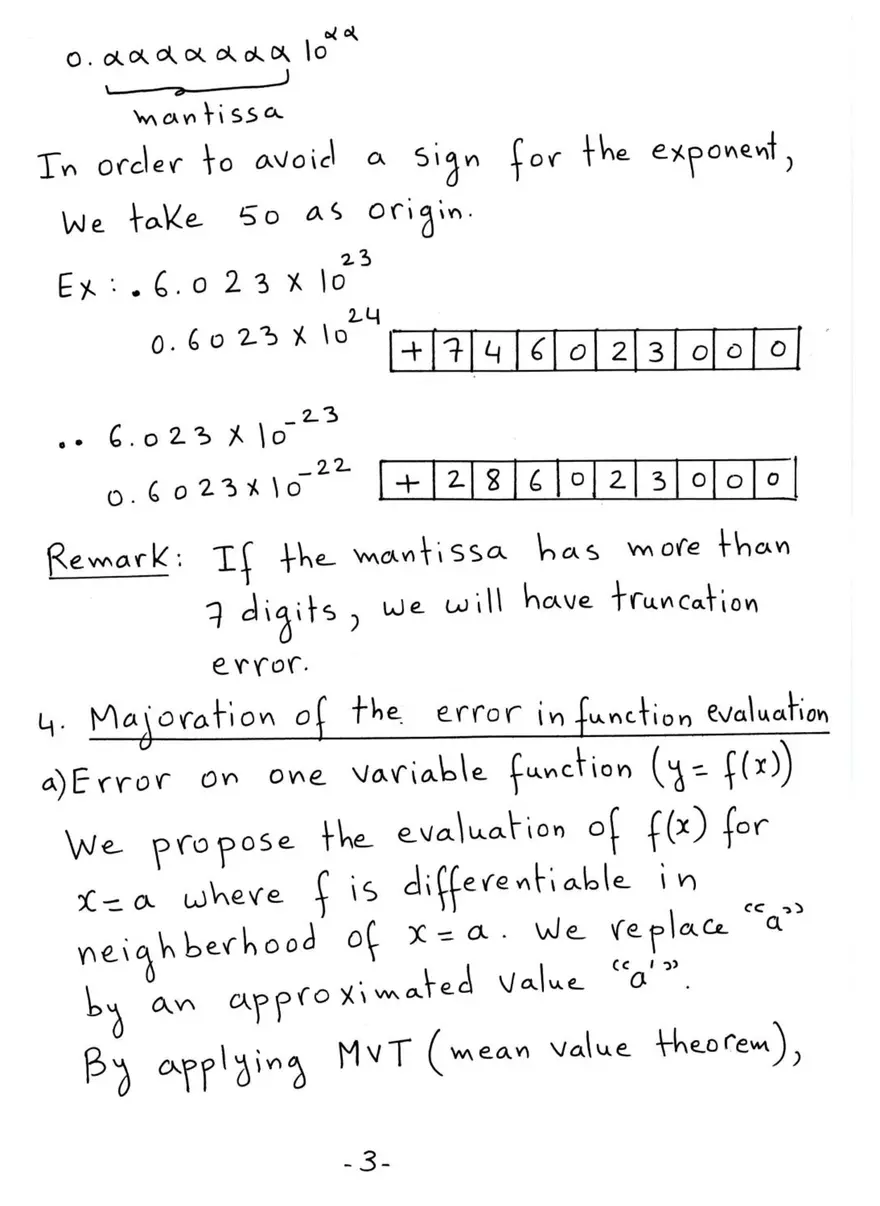 0. α α α α α α α 10^αα
mantissa
In order to avoid a sign for the exponent,
We take 50 as origin.
Ex : • 6.023 x 10^23
0.6023 x 10^24 + 7 4 6 0 2 3 0 0 0
•• 6.023 x 10^-23
0.6023 x 10^-22 + 2 8 6 0 2 3 0 0 0
Remark: If the mantissa has more than
7 digits, we will have truncation
error.
4. Majoration of the error in function evaluation
a) Error on one variable function (y = f(x))
We propose the evaluation of f(x) for
x = a where f is differentiable in
neighberhood of x = a. We replace “a”
by an approximated value “a'”.
By applying MVT (mean value theorem),
-3-